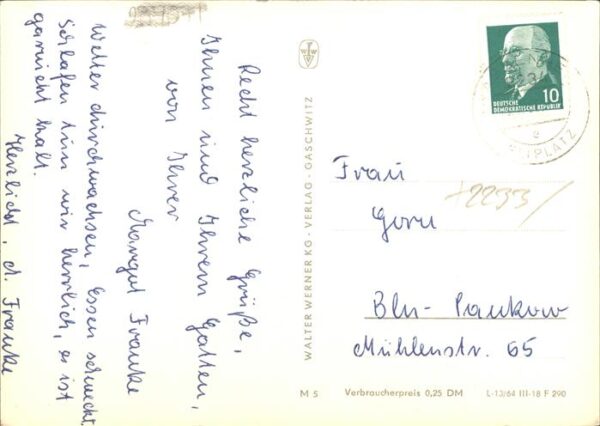 Recht herzliche Grüße,
Ihnen und Ihrem Gatten,
von Ihrer
Margut Franke
Wetter durchwachsen, Essen schmeckt,
Schlafen tun wir herrlich, es ist
garnicht kalt.
Herzlichst, M. Franke
WALTER WERNER KG · VERLAG · GASCHWITZ
10
DEUTSCHE
DEMOKRATISCHE REPUBLIK
e
Frau
+2233/
Gorn
Bln- Pankow
Mühlenstr. 65
M 5 Verbraucherpreis 0,25 DM L-13/64 III-18 F 290